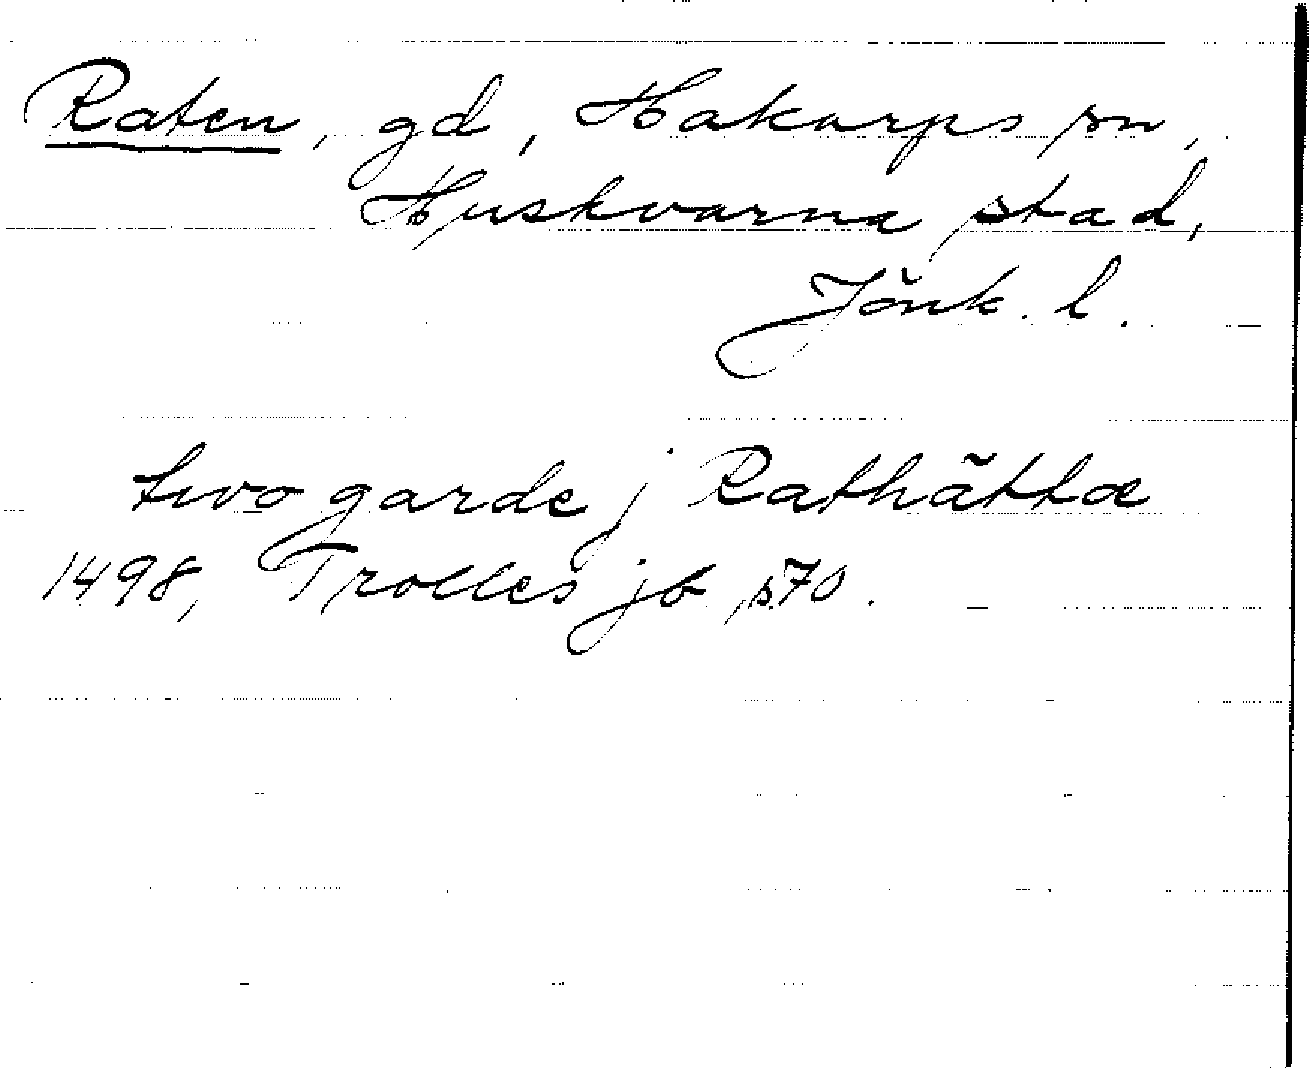 Raten, gd, Hakarps sn,
Huskvarna stad,
Jönk. l.
two garde j Rathättæ
1498, Trolles jb, s70.